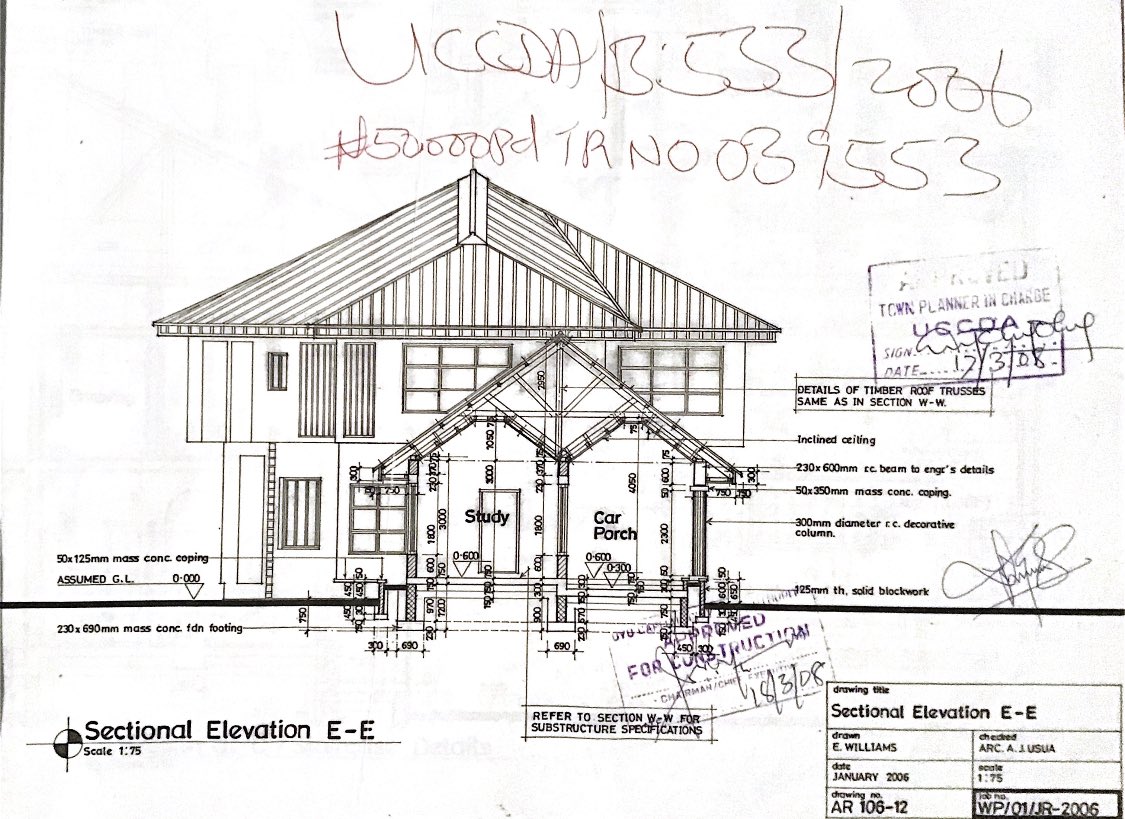 UCCDA/B:533/2006
#50,000Pd TR NO 039553
TOWN PLANNER IN CHARGE
SIGN.
DATE 12/3/08
DETAILS OF TIMBER ROOF TRUSSES
SAME AS IN SECTION W-W.
Inclined ceiling
230x600mm r.c. beam to engr's details
50x350mm mass conc. coping.
300mm diameter r.c. decorative
column.
125mm th, solid blockwork
Study
Car
Porch
2950
1050
3000
3000
4050
1800
1800
2300
750
750
300
300
0·600
0·600
0·300
50x125mm mass conc. coping
ASSUMED G.L. 0·000
230x690mm mass conc. fdn footing
750
300
690
900
690
450 300
APPROVED
FOR CONSTRUCTION
18/3/08
REFER TO SECTION W-W FOR
SUBSTRUCTURE SPECIFICATIONS
Sectional Elevation E-E
Scale 1:75
drawing title
Sectional Elevation E-E
drawn
E. WILLIAMS
checked
ARC. A. J. USUA
date
JANUARY 2006
scale
1:75
drawing no.
AR 106-12
job no.
WP/01/JR-2006